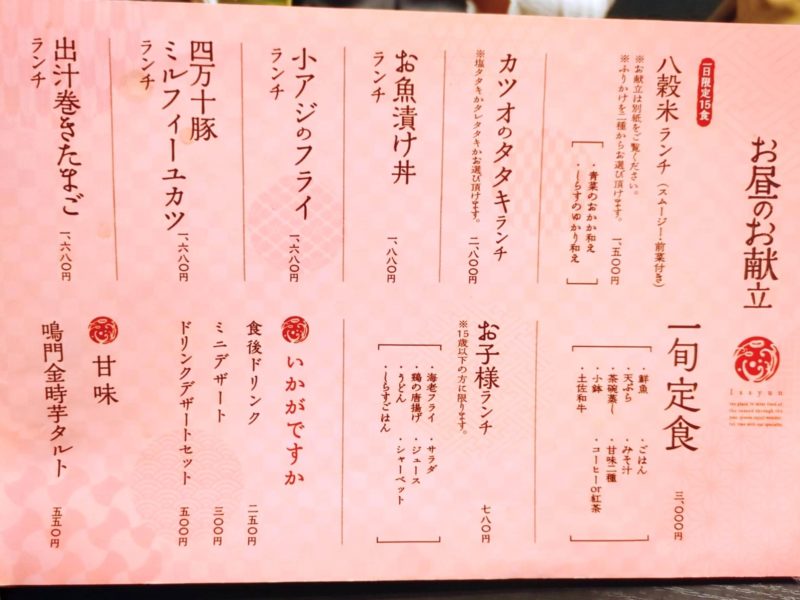 お昼のお献立
Issyun
一日限定15食
八穀米ランチ（スムージー・前菜付き）
※お献立は別紙をご覧ください。
※ふりかけを二種からお選び頂けます。
・青菜のおかか和え
・しらすのゆかり和え
一、五〇〇円
カツオのタタキランチ
※塩タタキかタレタタキかお選び頂けます。
二、八〇〇円
お魚漬け丼
ランチ
一、八八〇円
小アジのフライ
ランチ
一、六八〇円
四万十豚
ミルフィーユカツ
ランチ
一、六八〇円
出汁巻きたまご
ランチ
一、六八〇円
一旬定食
・鮮魚
・天ぷら
・茶碗蒸し
・小鉢
・土佐和牛
・ごはん
・みそ汁
・甘味二種
・コーヒーor紅茶
三、〇〇〇円
お子様ランチ
※15歳以下の方に限ります。
・海老フライ
・鶏の唐揚げ
・うどん
・しらすごはん
・サラダ
・ジュース
・シャーベット
七八〇円
いかがですか
食後ドリンク
二五〇円
ミニデザート
三〇〇円
ドリンクデザートセット
五〇〇円
甘味
鳴門金時芋タルト
五五〇円